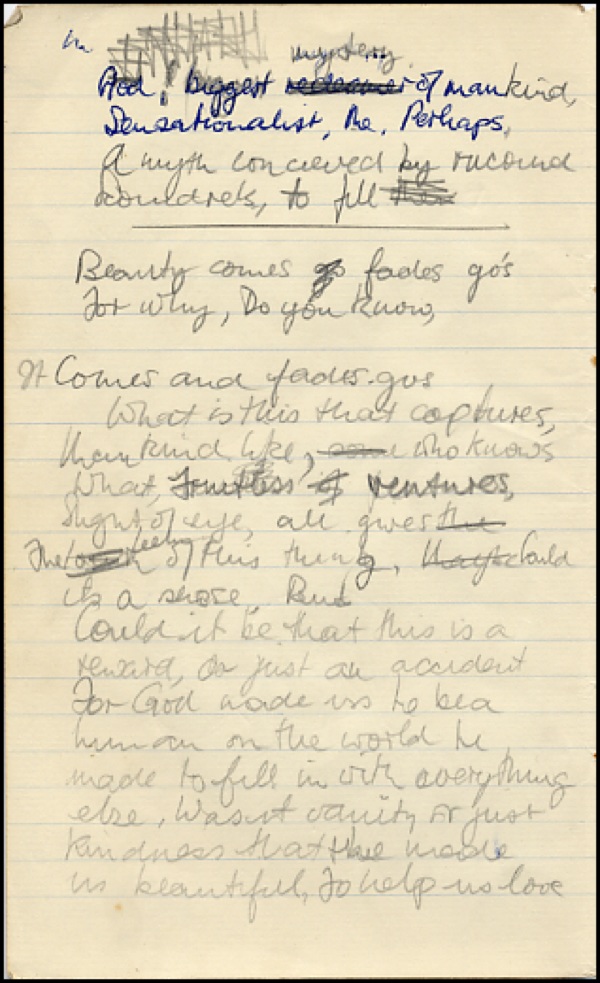 mystery
God, biggest redeemer of mankind,
Sensationalist, he, Perhaps,
A myth concieved by
scoundrels, to fill
Beauty comes fades go's
For why, Do you know,
It Comes and fades. gos
What is this that captures,
mankind like, who knows
What, fruitless ventures,
Sight of eye, all gives the
The of this thing, Could
its a shore, But
Could it be that this is a
reward, or just an accident
For God made us to be a
human on the world he
made to fill in with everything
else, Wasit vanity or just
kindness that he made
us beautiful, To help us love